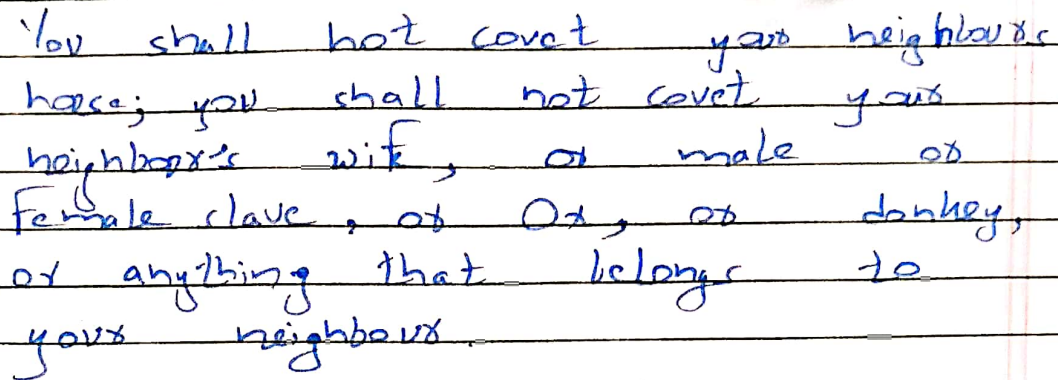 You shall not covet your neighbours
house; you shall not covet your
neighbour's wife, or male or
Female slave, or Ox, or donkey,
or anything that belongs to
your neighbour.